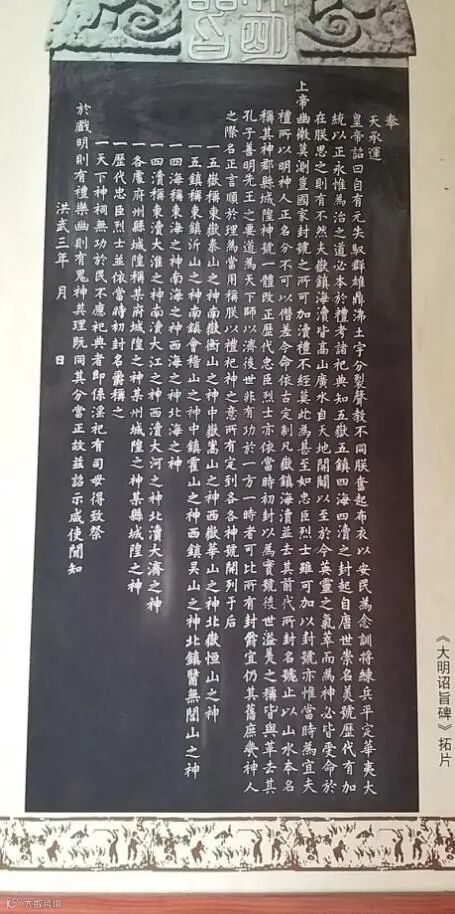 奉
天承運
皇帝詔曰自有元失馭群雄鼎沸土宇分裂聲教不同朕奮起布衣以安民為念訓將練兵平定華夷大
統以正永惟為治之道必本於禮考諸祀典知五嶽五鎮四海四瀆之封起自唐世崇名美號歷代有加
在朕思之則有不然夫嶽鎮海瀆皆高山廣水自天地開闢以至于今英靈之氣萃而為神必皆受命於
上帝幽微莫測豈國家封號之所可加瀆禮不經莫此為甚至如忠臣烈士雖可加以封號亦惟當時為宜夫
禮所以明神人正名分不可以僭差今命依古定制凡嶽鎮海瀆並去其前代所封名號止以山水本名
稱其神郡縣城隍神號一體改正歷代忠臣烈士亦依當時初封以為實號後世溢美之稱皆與革去其
孔子善明先王之要道為天下師以濟後世非有功於一方一時者可比所有封爵宜仍其舊庶幾神人
之際名正言順於理為當用稱朕以禮祀神之意所有定到各各神號開列于后
一五嶽稱東嶽泰山之神南嶽衡山之神中嶽嵩山之神西嶽華山之神北嶽恒山之神
一五鎮稱東鎮沂山之神南鎮會稽山之神中鎮霍山之神西鎮吳山之神北鎮醫無閭山之神
一四海稱東海之神南海之神西海之神北海之神
一四瀆稱東瀆大淮之神南瀆大江之神西瀆大河之神北瀆大濟之神
一各處府州縣城隍稱某府城隍之神某州城隍之神某縣城隍之神
一歷代忠臣烈士並依當時初封名爵稱之
一天下神祠無功於民不應祀典者即係淫祀有司毋得致祭
於戲明則有禮樂幽則有鬼神其理既同其分當正故茲詔示咸使聞知
洪武三年 月 日
《大明诏旨碑》拓片
大蚁跨境